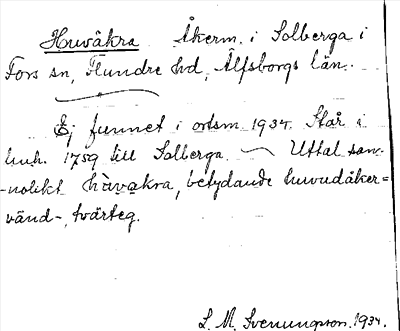 Huvåkra Åkerm. i Solberga i
Fors sn, Flundre hd, Älfsborgs län.
Ej funnet i ortsn 1934. Står i
huh. 1759 till Solberga. — Uttal san-
-nolikt hàvakra, betydande huvudåker=
vänd-, tvärteg.
L. M. Svenungsson. 1934.